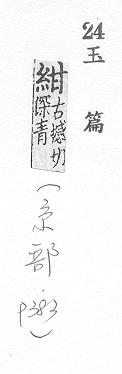 24 玉篇
紺
古憾切
深青
(糸部·P383)